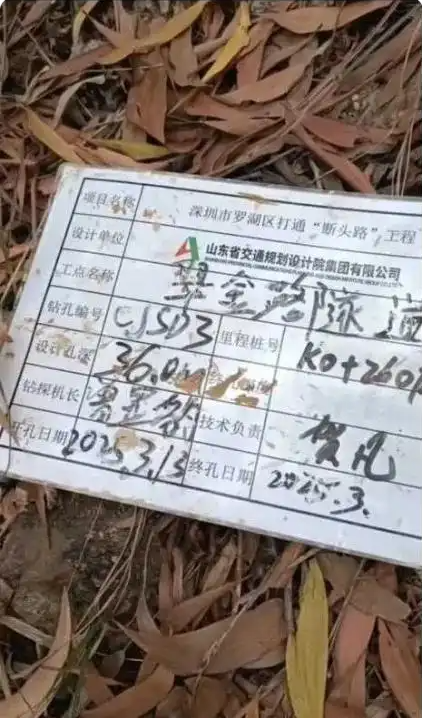 项目名称 深圳市罗湖区打通“断头路”工程
设计单位 山东省交通规划设计院集团有限公司
工点名称 金路隧道
钻孔编号 CJSD3 里程桩号 K0+260
设计孔深 36.0m
钻探机长 技术负责 贺凡
开孔日期 2025.3.13 终孔日期 2025.3.